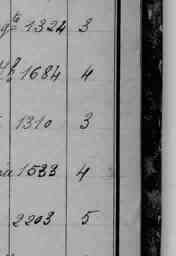 1324 3
1684 4
1310 3
1533 4
2203 5